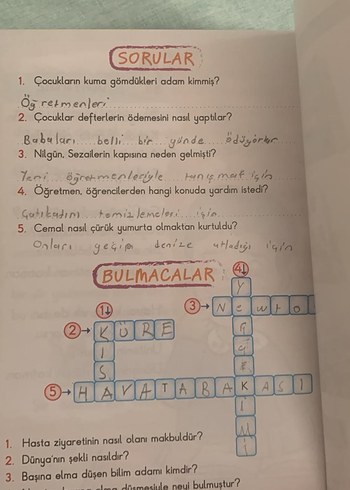 SORULAR
1. Çocukların kuma gömdükleri adam kimmiş?
Öğretmenleri
2. Çocuklar defterlerin ödemesini nasıl yaptılar?
Babaları belli bir günde ödüyorlar
3. Nilgün, Sezailerin kapısına neden gelmişti?
Yeni öğretmenleriyle için
4. Öğretmen, öğrencilerden hangi konuda yardım istedi?
temizlemeleri için
5. Cemal nasıl çürük yumurta olmaktan kurtuldu?
Onları geçip denize atladığı için
BULMACALAR
4
1 3 Newton
2 KÜRE
KISA
5 HAVATARAKASI
1. Hasta ziyaretinin nasıl olanı makbuldür?
2. Dünya'nın şekli nasıldır?
3. Başına elma düşen bilim adamı kimdir?
elma düşmesiyle neyi bulmuştur?